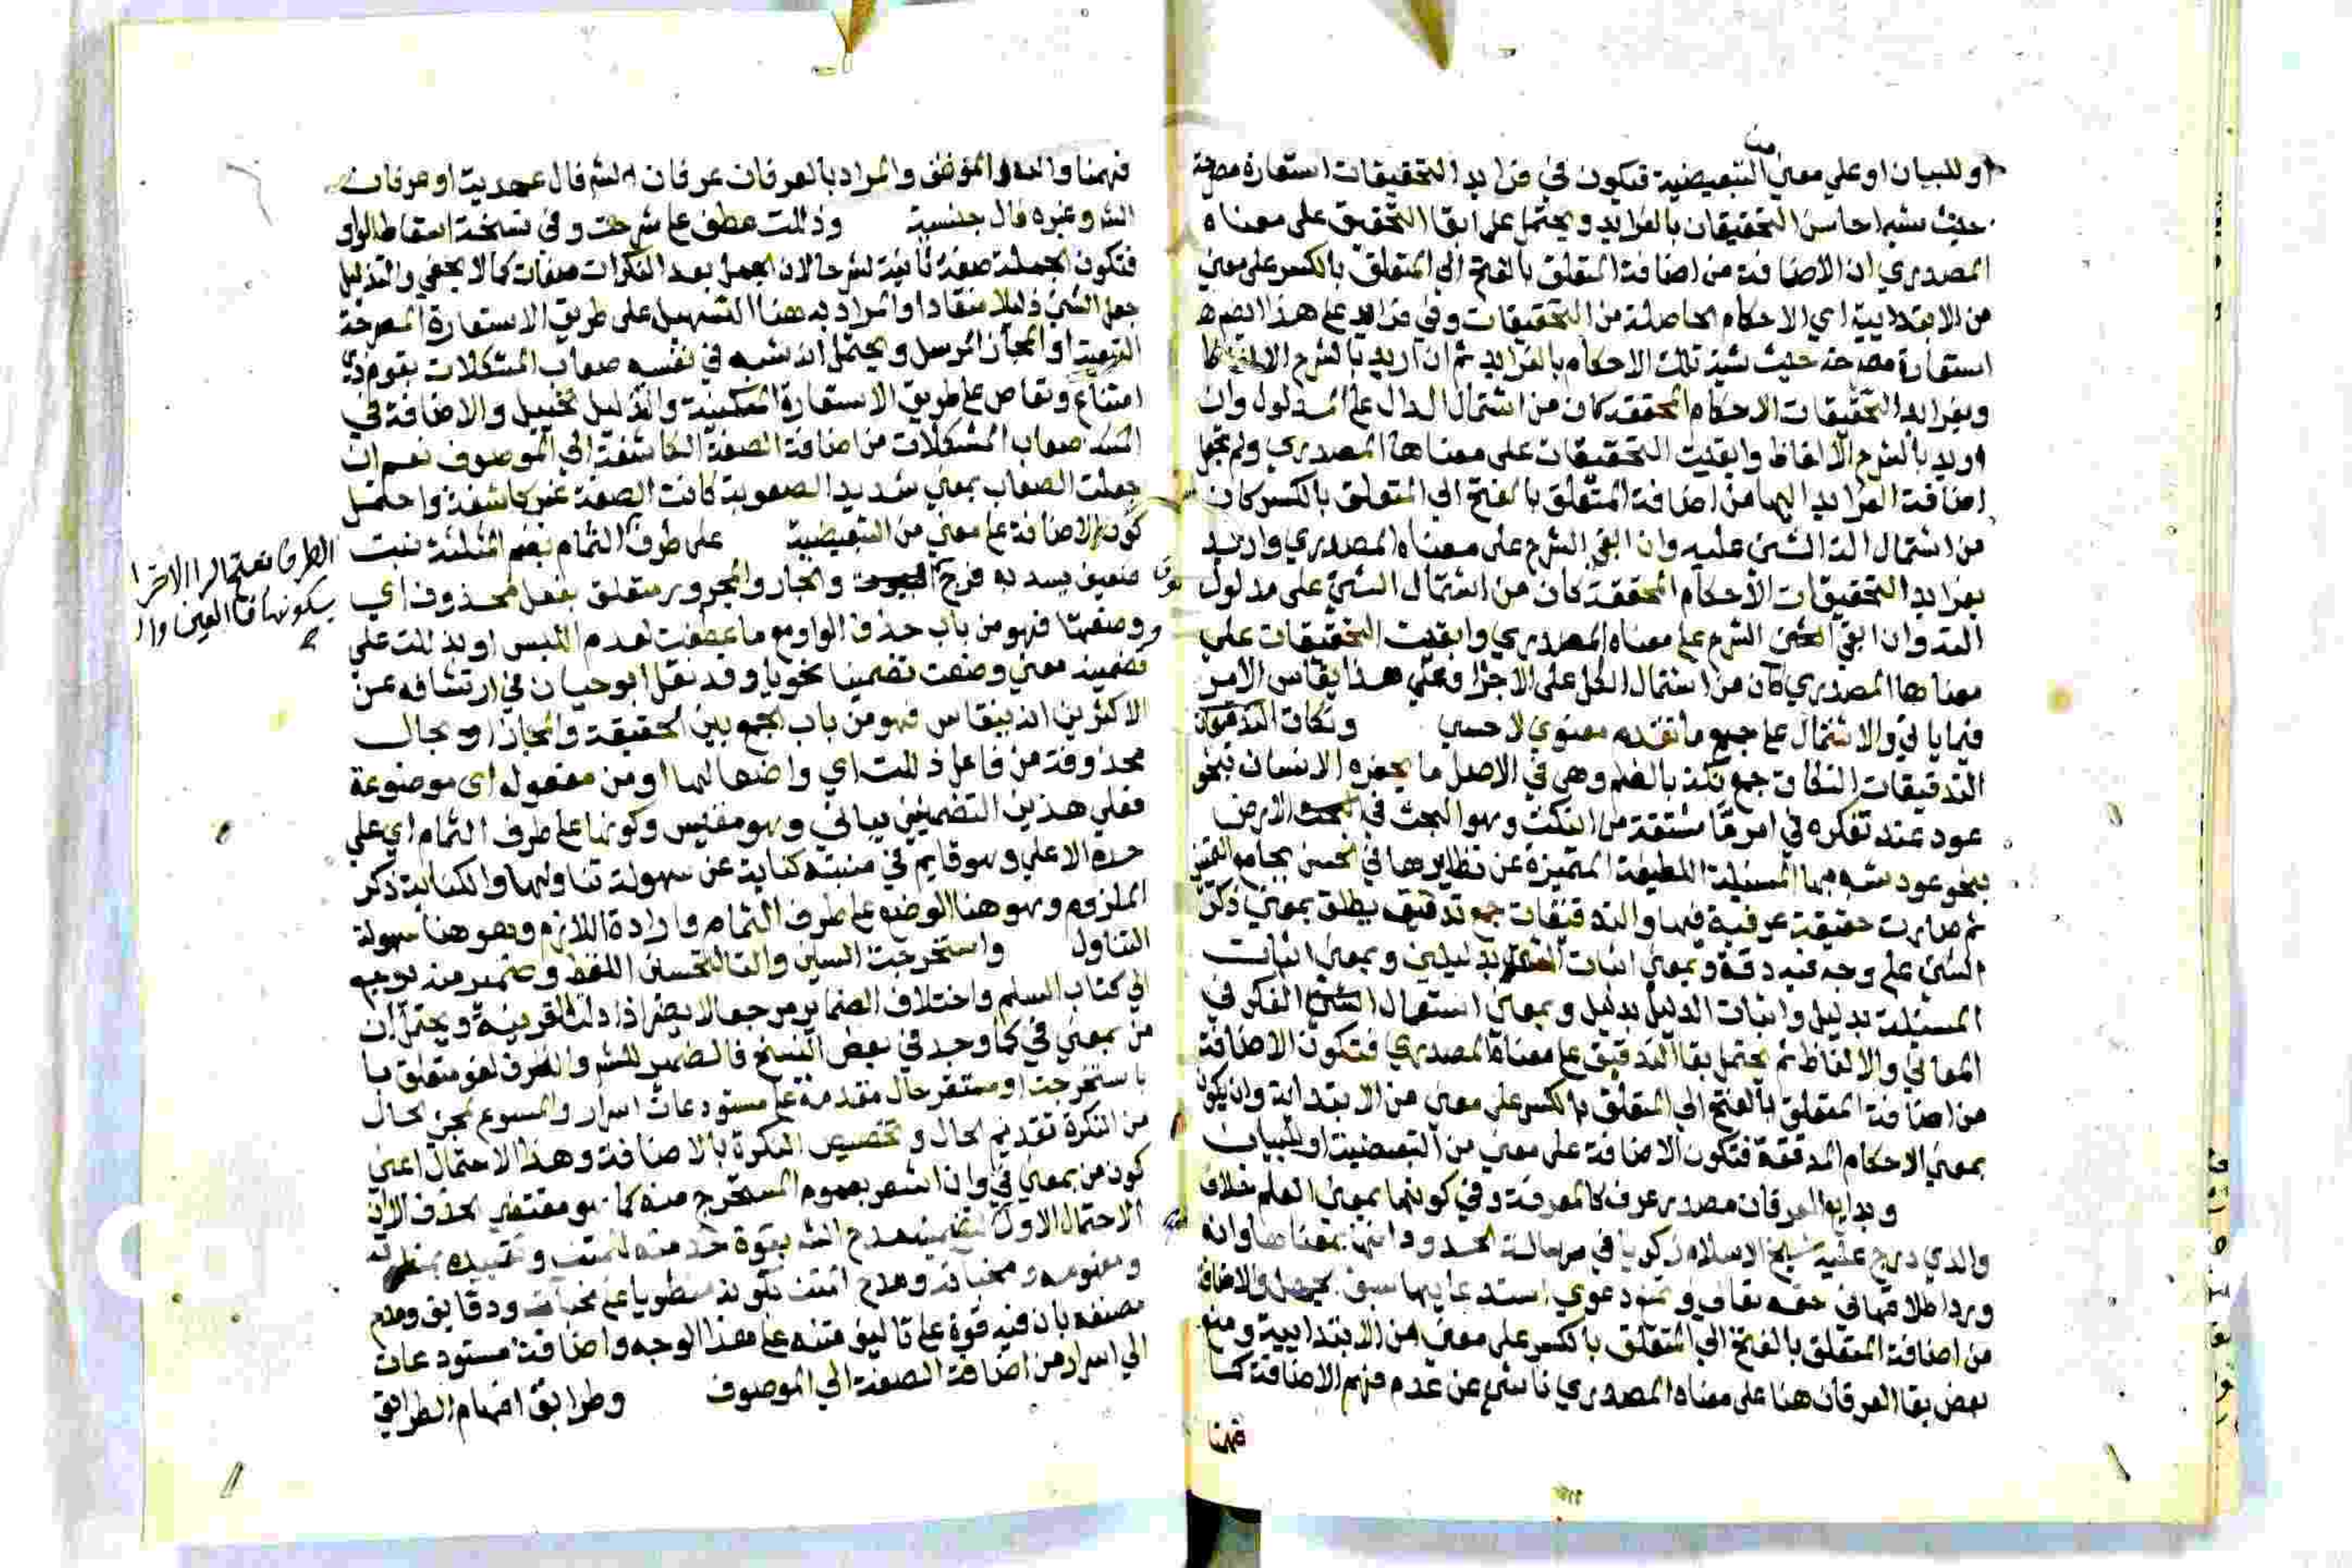 او للبيان او علي معني من التبعيضية فيكون في فرايد التحقيقات استعارة مصرحة
حيث شبه احاسن التحقيقات بالفرايد ويحتمل علي ابقا التحقيق علي معناه
المصدري ان الاضافة من اضافة المتعلق بالفتح الي المتعلق بالكسر علي معني
من الابتدايية اي الاحكام الحاصلة من التحقيقات وفي فرايد علي هذا ايضا
استعارة مصرحة حيث شبه تلك الاحكام بالفرايد ثم ان اريد بالشرح الالفاظ
وبفرايد التحقيقات الاحكام المحققة كان من اشتمال الدال علي المدلول وان
اريد بالشرح الالفاظ وابقيت التحقيقات علي معناها المصدري ولم تجعل
اضافة الفرايد اليها من اضافة المتعلق بالفتح الي المتعلق بالكسر كان
من اشتمال الشئ عليه وان ابقي الشرح علي معناه المصدري واريد
بفرايد التحقيقات الاحكام المحققة كان من اشتمال الشئ علي مدلول
وان ابقي الشرح علي معناه المصدري وابقيت التحقيقات علي
معناها المصدري كان من اشتمال الكل علي الاجزا وعلي هذا يقاس الامر
فيما ياتي والاشتمال علي جميع ما تقدم معنوي لا حسي ونكات التدقيقات
التدقيقات النكات جمع نكتة بالضم وهي في الاصل ما يحفره الانسان بنحو
عود عند تفكره في امر مشتقة من النكت وهو البحث في الارض
بنحو عود شبه بها المسئلة اللطيفة المتميزة عن نظايرها في الحسن بجامع التميز
ثم صارت حقيقة عرفية فيها والتدقيقات جمع تدقيق يطلق بمعني ذكر
الشئ علي وجه فيه دقة وبمعني اثبات بدليلين وبمعني اثبات
المسئلة بدليل واثبات الدليل بدليل وبمعني استعمال الفكر في
المعاني والالفاظ ثم يحتمل بقا التدقيق علي معناه المصدري فتكون الاضافة
من اضافة المتعلق بالفتح الي المتعلق بالكسر علي معني من الابتدائية وان يكون
بمعني الاحكام المدققة فتكون الاضافة علي معني من التبعيضية او للبيان
العرفان مصدر عرف كالمعرفة وفي كونها بمعني العلم خلاف
والذي درج عليه شيخ الاسلام زكريا في رسالة الحدود انها بمعناها وانه
ورد اطلاقها في حقه تعالي ودعوي استدعايها سبق جهل والاضافة
من اضافة المتعلق بالفتح الي المتعلق بالكسر علي معني من الابتدايية ومنع
بعض بقا العرفان هنا علي معناه المصدري ناشئ عن عدم فهم الاضافة كما
فهمنا
فهمنا والله الموفق والمراد بالعرفان عرفان الش فال عهدية او عرفان
الش وغيره فال جنسية وذللت عطف علي شرحت وفي نسخة اسقاط الواو
فتكون الجملة صفة ثانية لشرحا لان الجمل بعد النكرات صفات كما لا يخفي والتذليل
جعل الشئ ذليلا منقادا والمراد به هنا التسهيل علي طريق الاستعارة المصرحة
التبعية او المجاز المرسل ويحتمل انه شبه في نفسه صعاب المشكلات بقوم ذوي
امتناع علي طريق الاستعارة المكنية والتذليل تخييل والاضافة في
صعاب المشكلات من اضافة الصفة الكاشفة الي الموصوف نعم ان
جعلت الصعاب بمعني شديد الصعوبة كانت الصفة غير كاشفة واحتمل
كون الاضافة علي معني من التبعيضية علي طرف الثمام بضم المثلثة نبت
ضعيف يسد به فرج البيوت والجار والمجرور متعلق بفعل محذوف اي
ووضعتها فهو من باب حذف الواو مع ما عطفت لعدم اللبس او بذللت علي
تضمينه معني وضعت تضمينا نحويا وقد نقل ابو حيان في ارتشافه عن
الاكثرين انه ينقاس فهو من باب الجمع بين الحقيقة والمجاز او بحال
محذوفة من فاعل ذللت اي واضعا لها او من مفعوله اي موضوعة
فعلي هذين التضمين بياني وهو مقيس وكونها علي طرف الثمام اي علي
حده الاعلي وهو قايم في منبته كناية عن سهولة تناولها والكناية ذكر
الملزوم وهو هنا الوضع علي طرف الثمام وارادة اللازم وهو هنا سهولة
التناول واستخرجت السين والتا لتحسين اللفظ وضمير منه يرجع
الي كتاب السلم واختلاف الضماير مرجعا لا يضر اذا دلت القرينة ويحتمل ان
من بمعني في كما وجد في بعض النسخ فالضمير للشرح والظرف لغو متعلق
باستخرجت او مستقر حال مقدمة علي مستودعات اسرار والمسوغ لمجئ الحال
من النكرة تقديم الحال وتخصيص النكرة بالاضافة وهذا الاحتمال اعني
كون من بمعني في وان اشعر بعموم المستخرج منه كما هو مقتضي الحذف الا ان
الاحتمال الاول مدح الش بقوة خدمته للمتن وتقييده
ومفهومه ومخباته ومدح المتن بكونه منطويا علي مخبآت ودقايق ومدح
مصنفه بان فيه قوة علي تاليف متنه علي هذا الوجه واضافة مستودعات
الي اسرار من اضافة الصفة الي الموصوف وطرايق افهام الطرايق
الطرف بفتح الرا الاخر
بسكونها العين